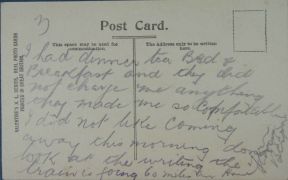 Post Card.
This space may be used for communication.
The address only to be written here.
I had dinner tea Bed &
Breakfast and they did
not charge me anything
they made me so comfortable
I did not like coming
away this morning dont
look at the writing the
train is going 60 miles an hour